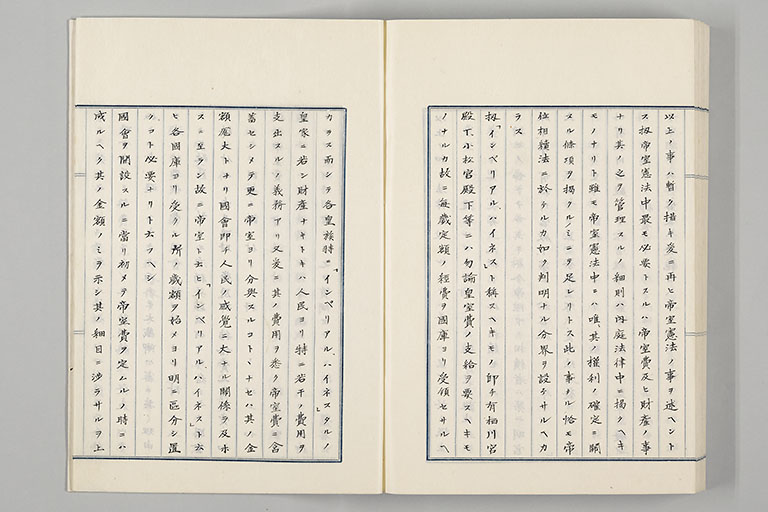 以上ノ事ハ暫ク措キ爰ニ再ヒ帝室憲法ノ事ヲ述ヘント
ス扨帝室憲法中最モ必要トスルハ帝室費及ヒ財産ノ事
ナリ其ノ之ヲ管理スルノ細則ハ内庭法律中ニ揭クヘキ
モノナリト雖モ帝室憲法中ニハ唯其ノ權利ノ確定ニ關
スル條項ヲ揭クルノミニテ足レリトス此ノ事タル恰モ帝
位相續法ニ於ケルカ如ク判明ナル分界ヲ設ケサルヘカ
ラス
扨「インペリアル、ハイネスト」稱スヘキモノ即チ有栖川宮
殿下小松宮殿下等ニハ勿論皇室費ノ支給ヲ要スヘキモ
ノナルカ故ニ每歲定額ノ經費ヲ國庫ヨリ受領セサルヘ
カラス而シテ各皇族時ニ「インペリアル、ハイネスタルノ」
皇家ニ若シ財産ナキトキハ人民ヨリ特ニ若干ノ費用ヲ
支出スルノ義務アリ又爰ニ其ノ費用ヲ悉ク帝室費ニ含
蓄セシメテ更ニ帝室ヨリ分與スルコトヽナセハ其ノ金
額尨大トナリ國會即チ人民ノ感覺ニ大ナル關係ヲ及ホ
スニ至ラン故ニ帝室ト云ヒ「インペリアル、ハイネスト」云
ヒ各國庫ヨリ受クル所ノ歲額ヲ始メヨリ明ニ區分シ置
クコト必要ナリト云フヘシ
國會ヲ開設スルニ當リ初メテ帝室費ヲ定ムルノ時ニハ
成ルヘク其ノ金額ノミヲ示シ其ノ細目ニ涉ラサルヲ上